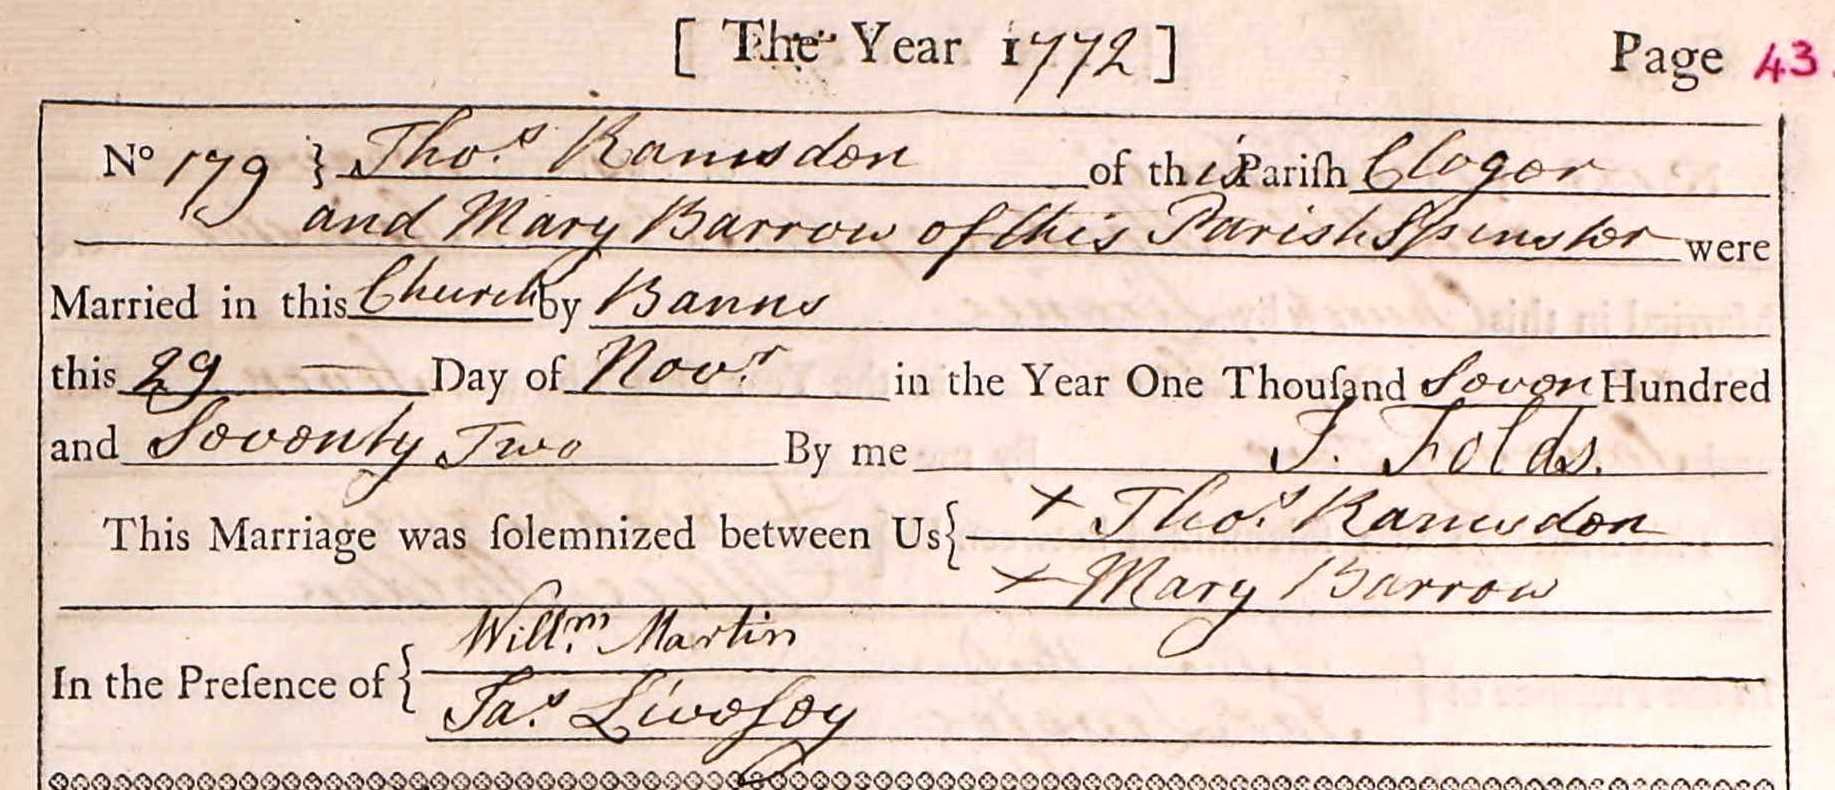 [ The Year 1772 ] Page 43.
No 179 } Thos. Ramsden of this Pariſh Cloger
and Mary Barrow of this Parish Spinster were
Married in this Church by Banns
this 29 — Day of Novr. in the Year One Thouſand Seven Hundred
and Seventy Two By me J. Folds.
This Marriage was ſolemnized between Us { + Thos. Ramsden
+ Mary Barrow
In the Preſence of { Willm. Martin
Jas. Liveſey